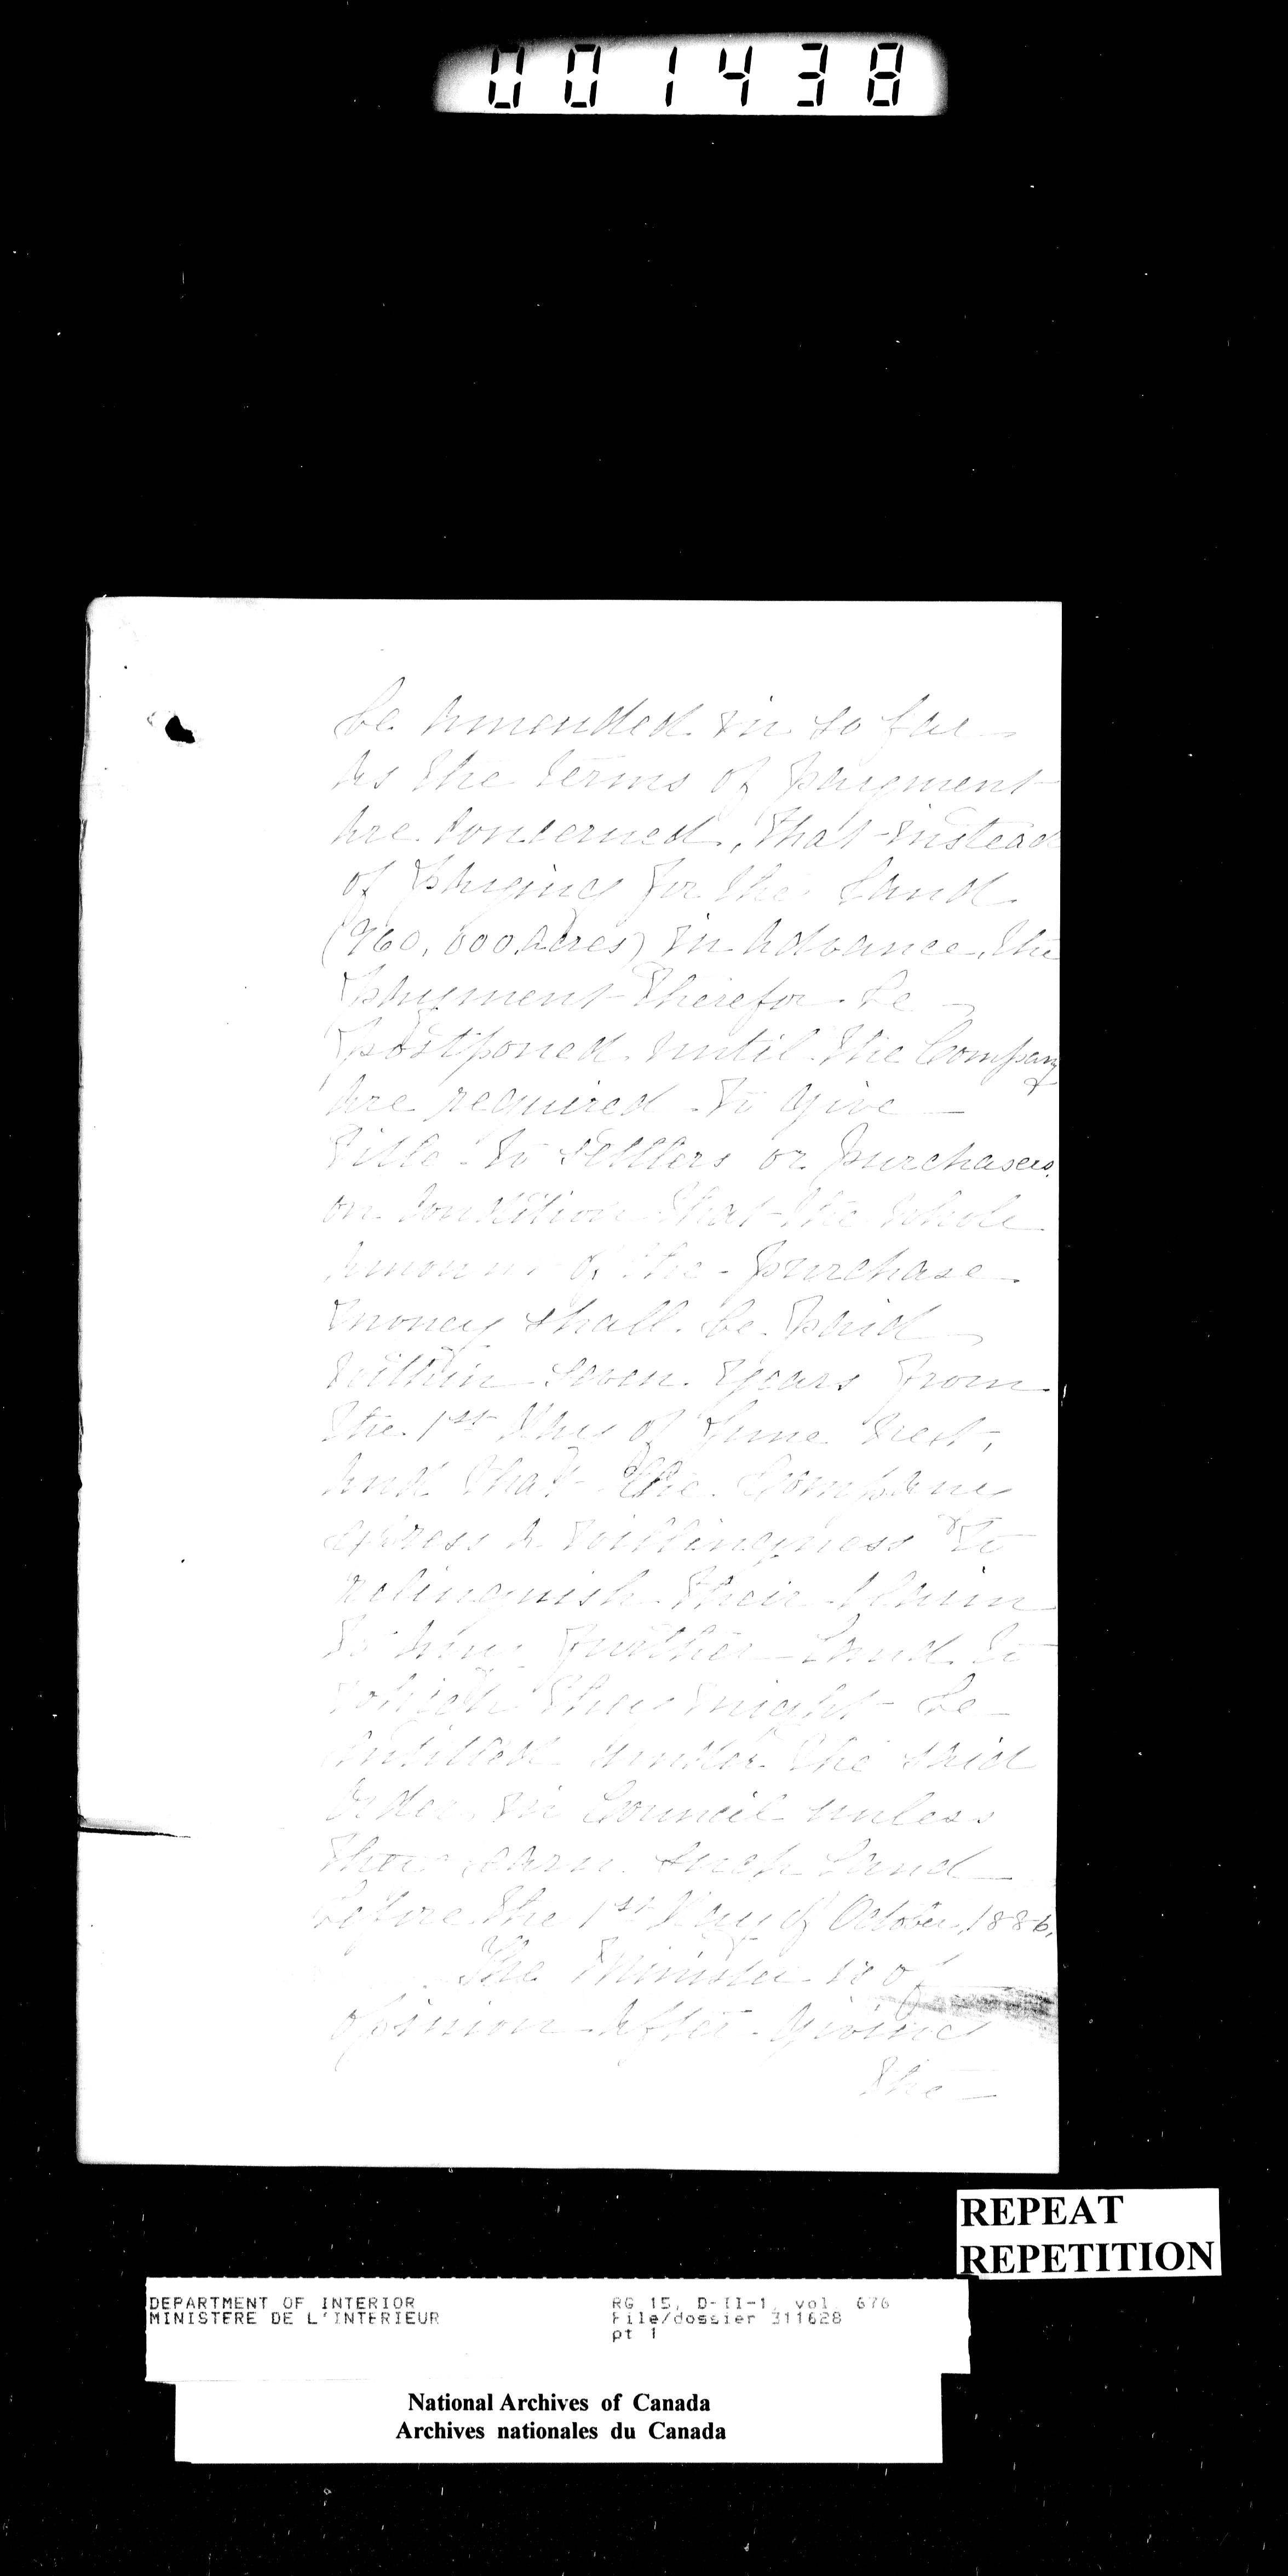 001438
be amended in so far
as the terms of payment
are concerned, that instead
of paying for the land
(960,000 acres) in advance, the
payment therefor be
postponed until the Company
are required to give
title to settlers or purchasers,
on condition that the whole
amount of the purchase
money shall be paid
within seven years from
the 1st day of June next,
and that the Company
express a willingness to
relinquish their claim
to any further land to
which they might be
entitled under the said
Order in Council unless
they earn such land
before the 1st day of October, 1886.
The Minister is of
opinion after giving
the
REPEAT
REPETITION
DEPARTMENT OF INTERIOR
MINISTERE DE L'INTERIEUR
RG 15, D-II-1, vol. 676
File/dossier 311628
pt 1
National Archives of Canada
Archives nationales du Canada